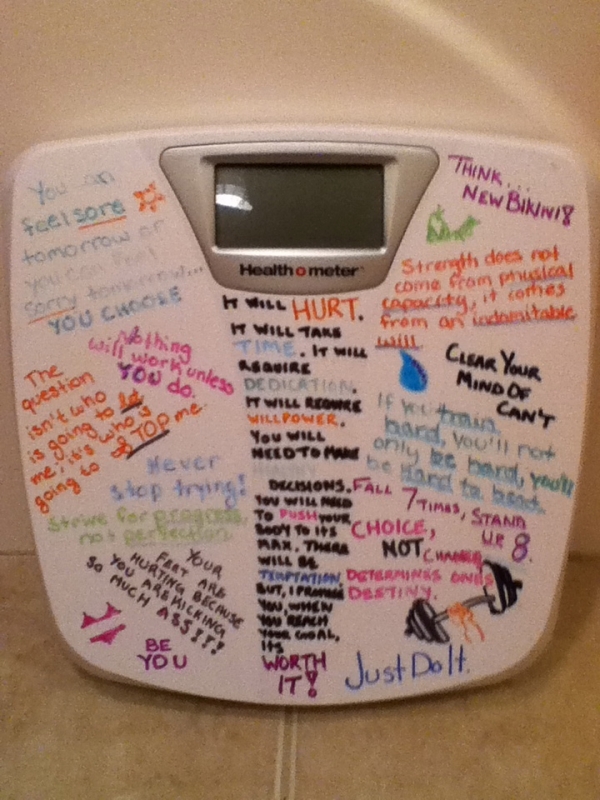 Health o meter
You can
feel sore
tomorrow or
you can feel
sorry tomorrow...
YOU CHOOSE
Nothing
will work unless
YOU do.
The
question
isn't who
is going to let
me; it's who is
going to STOP me.
Never
stop trying!
Strive for progress,
not perfection.
YOUR
FEET ARE
HURTING BECAUSE
YOU ARE KICKING
SO MUCH ASS!!!
BE
YOU
IT WILL HURT.
IT WILL TAKE
TIME. IT WILL
REQUIRE
DEDICATION.
IT WILL REQUIRE
WILLPOWER.
YOU WILL
NEED TO MAKE
HEALTHY
DECISIONS.
YOU WILL NEED
TO PUSH YOUR
BODY TO ITS
MAX. THERE
WILL BE
TEMPTATION.
BUT, I PROMISE
YOU, WHEN
YOU REACH
YOUR GOAL,
ITS
WORTH
IT!
THINK...
NEW BIKINIS
Strength does not
come from physical
capacity, it comes
from an indomitable
will
CLEAR YOUR
MIND OF
CAN'T
If you train
hard, you'll not
only be hard, you'll
be hard to beat.
FALL 7 TIMES, STAND
UP 8.
CHOICE,
NOT CHANCE,
DETERMINES ONES
DESTINY.
Just Do It.